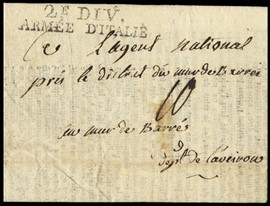 2E DIV.
ARMÉE D'ITALIE
L'agent national
près le district du mur de Barrés
10
au mur de Barrés
dept. de l'aveiron